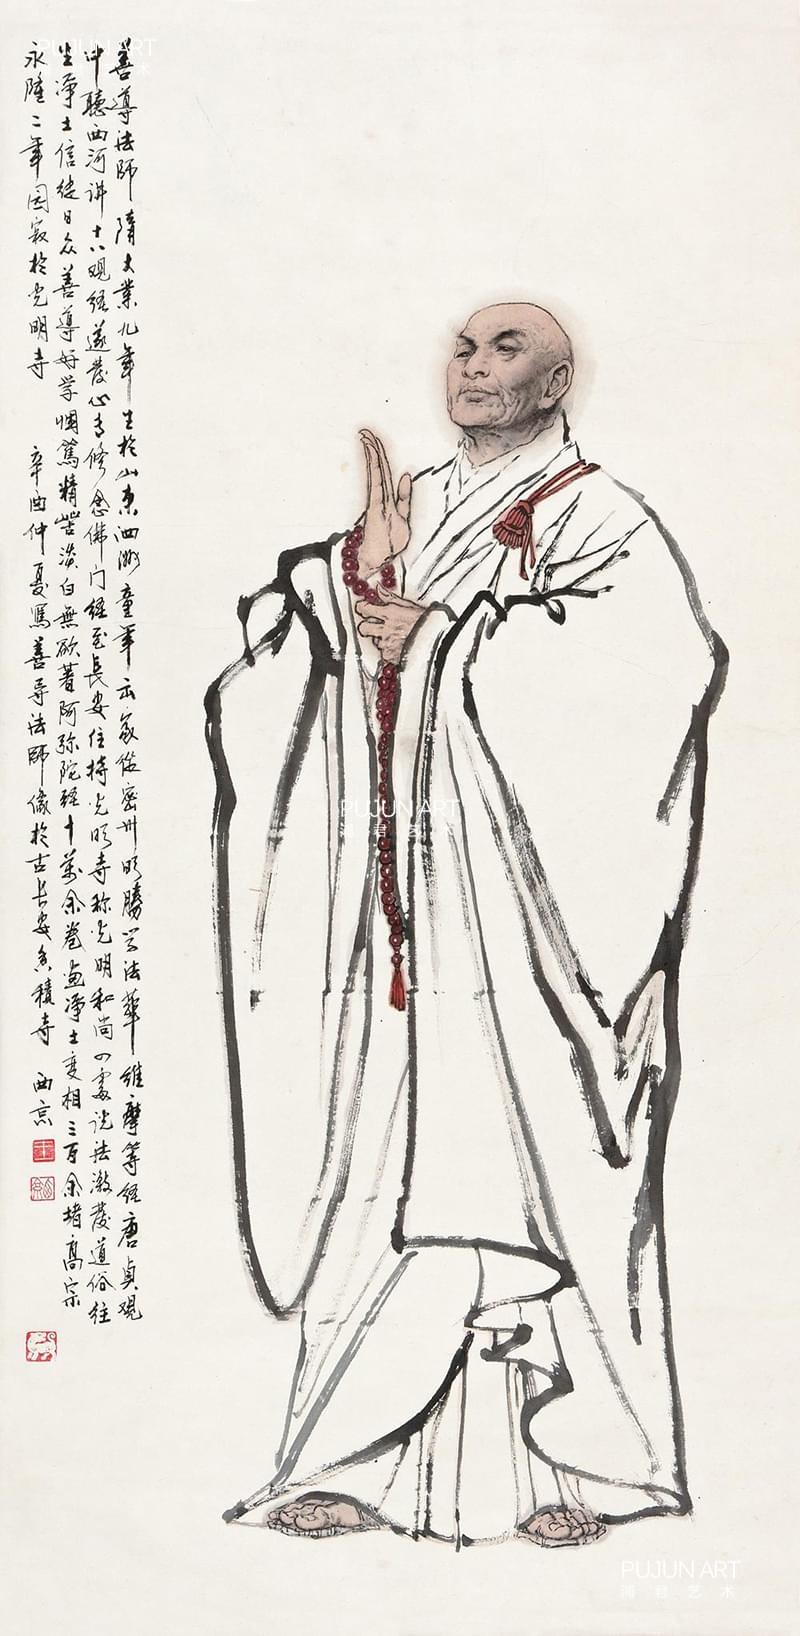 善導法師隋大業九年生於山東泗洲童年出家從密州明勝學法華維摩等經唐貞观
中聽西河讲十六观经遂發心专修念佛门经至長安住持光明寺称光明和尚四處说法激發道俗往
生净土信徒日众善導好学惆篤精苦淡白無欲著阿弥陀经十萬余卷画净土变相三百余堵高宗
永隆二年圆寂於光明寺
辛酉仲夏寫善导法師像於古長安香積寺 西京
PUJUN ART
浦君艺术
PUJUN ART
浦君艺术
PUJUN ART
浦君艺术